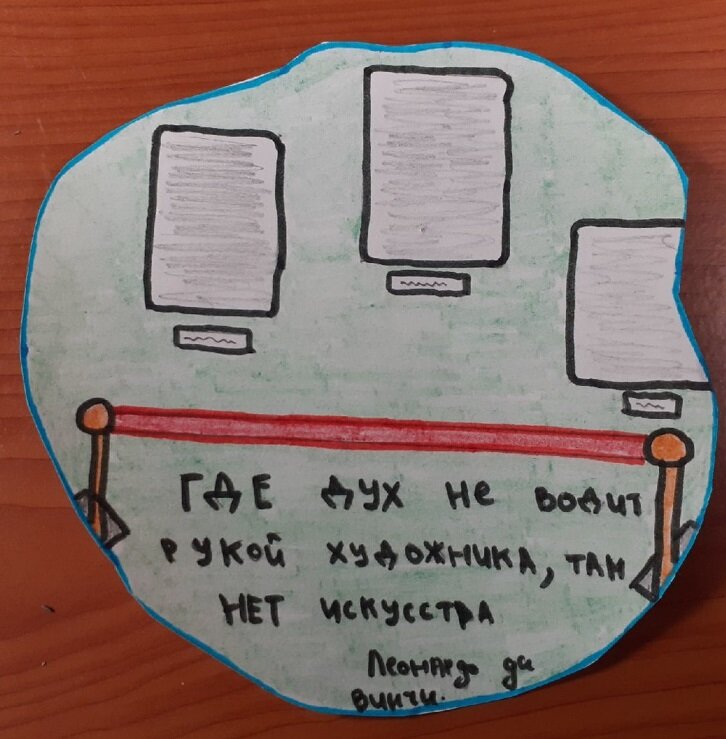 ГДЕ ДУХ НЕ ВОДИТ
РУКОЙ ХУДОЖНИКА, ТАМ
НЕТ ИСКУССТРА
Леонардо да
Винчи.